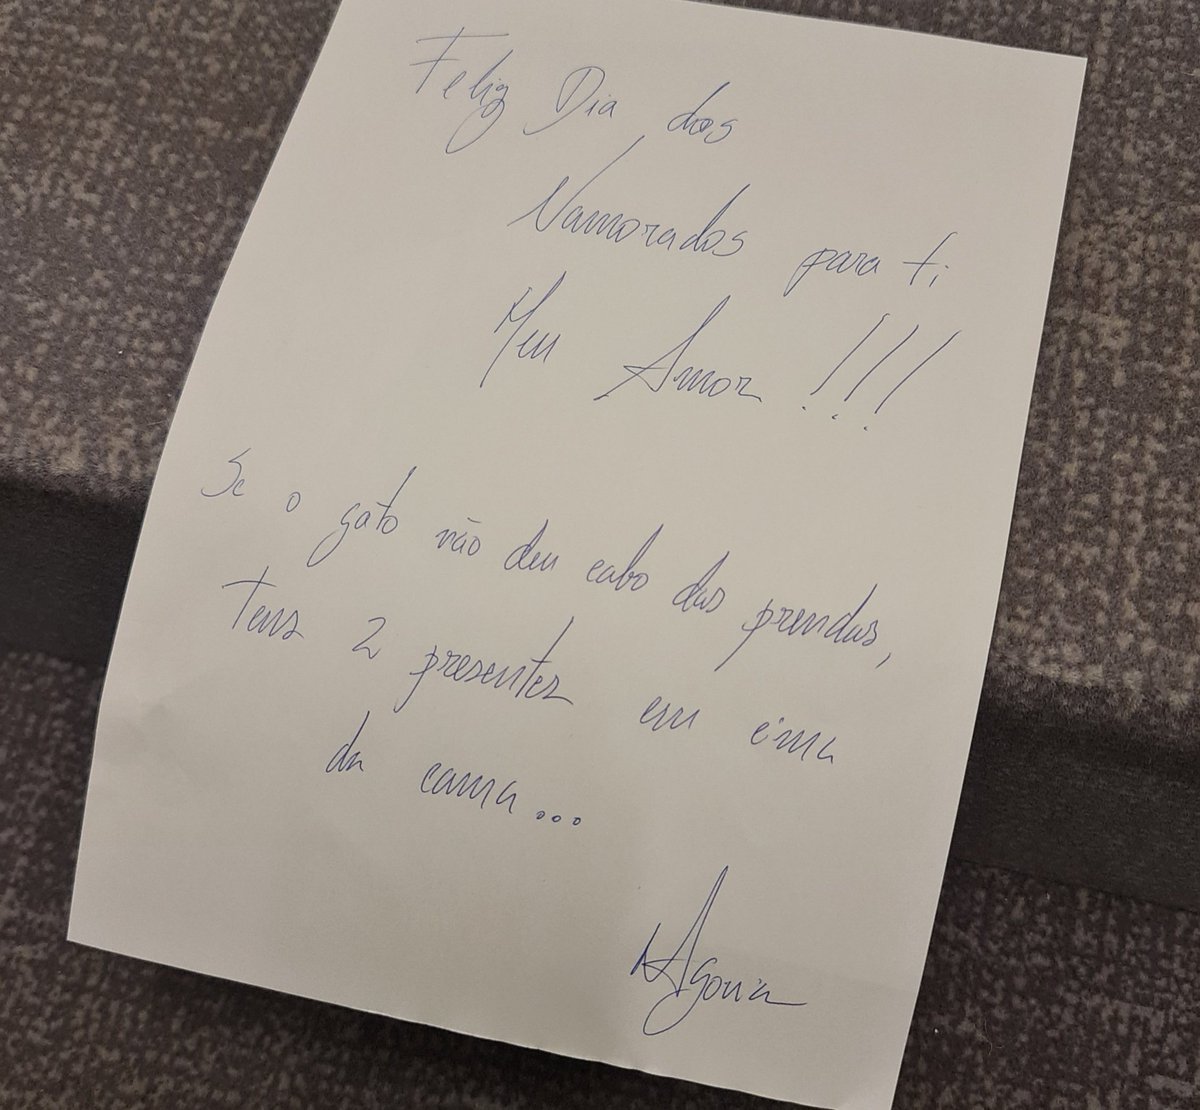 Feliz Dia dos
Namorados para ti
Meu Amor!!!
Se o gato não deu cabo das prendas,
Tens 2 presentes em cima
da cama...
Agonia